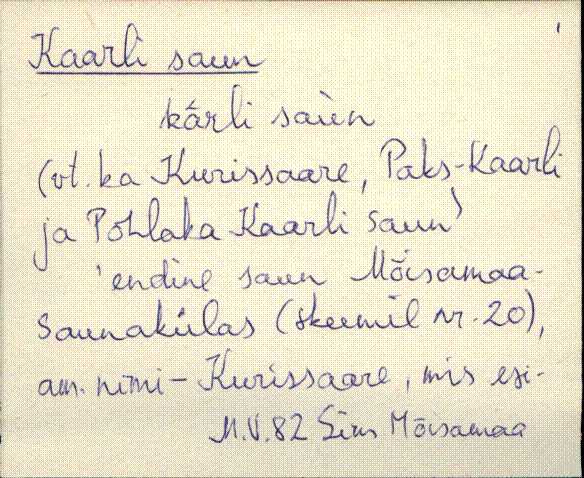 Kaarli saun
kārli saùn
(vt. ka Kurissaare, Paks-Kaarli
ja Pohlaka Kaarli saun)
'endine saun Mõisamaa-
Saunakülas (skeemil nr. 20),
am. nimi - Kurissaare, mis esi-
M.V. 82 Sim Mõisamaa